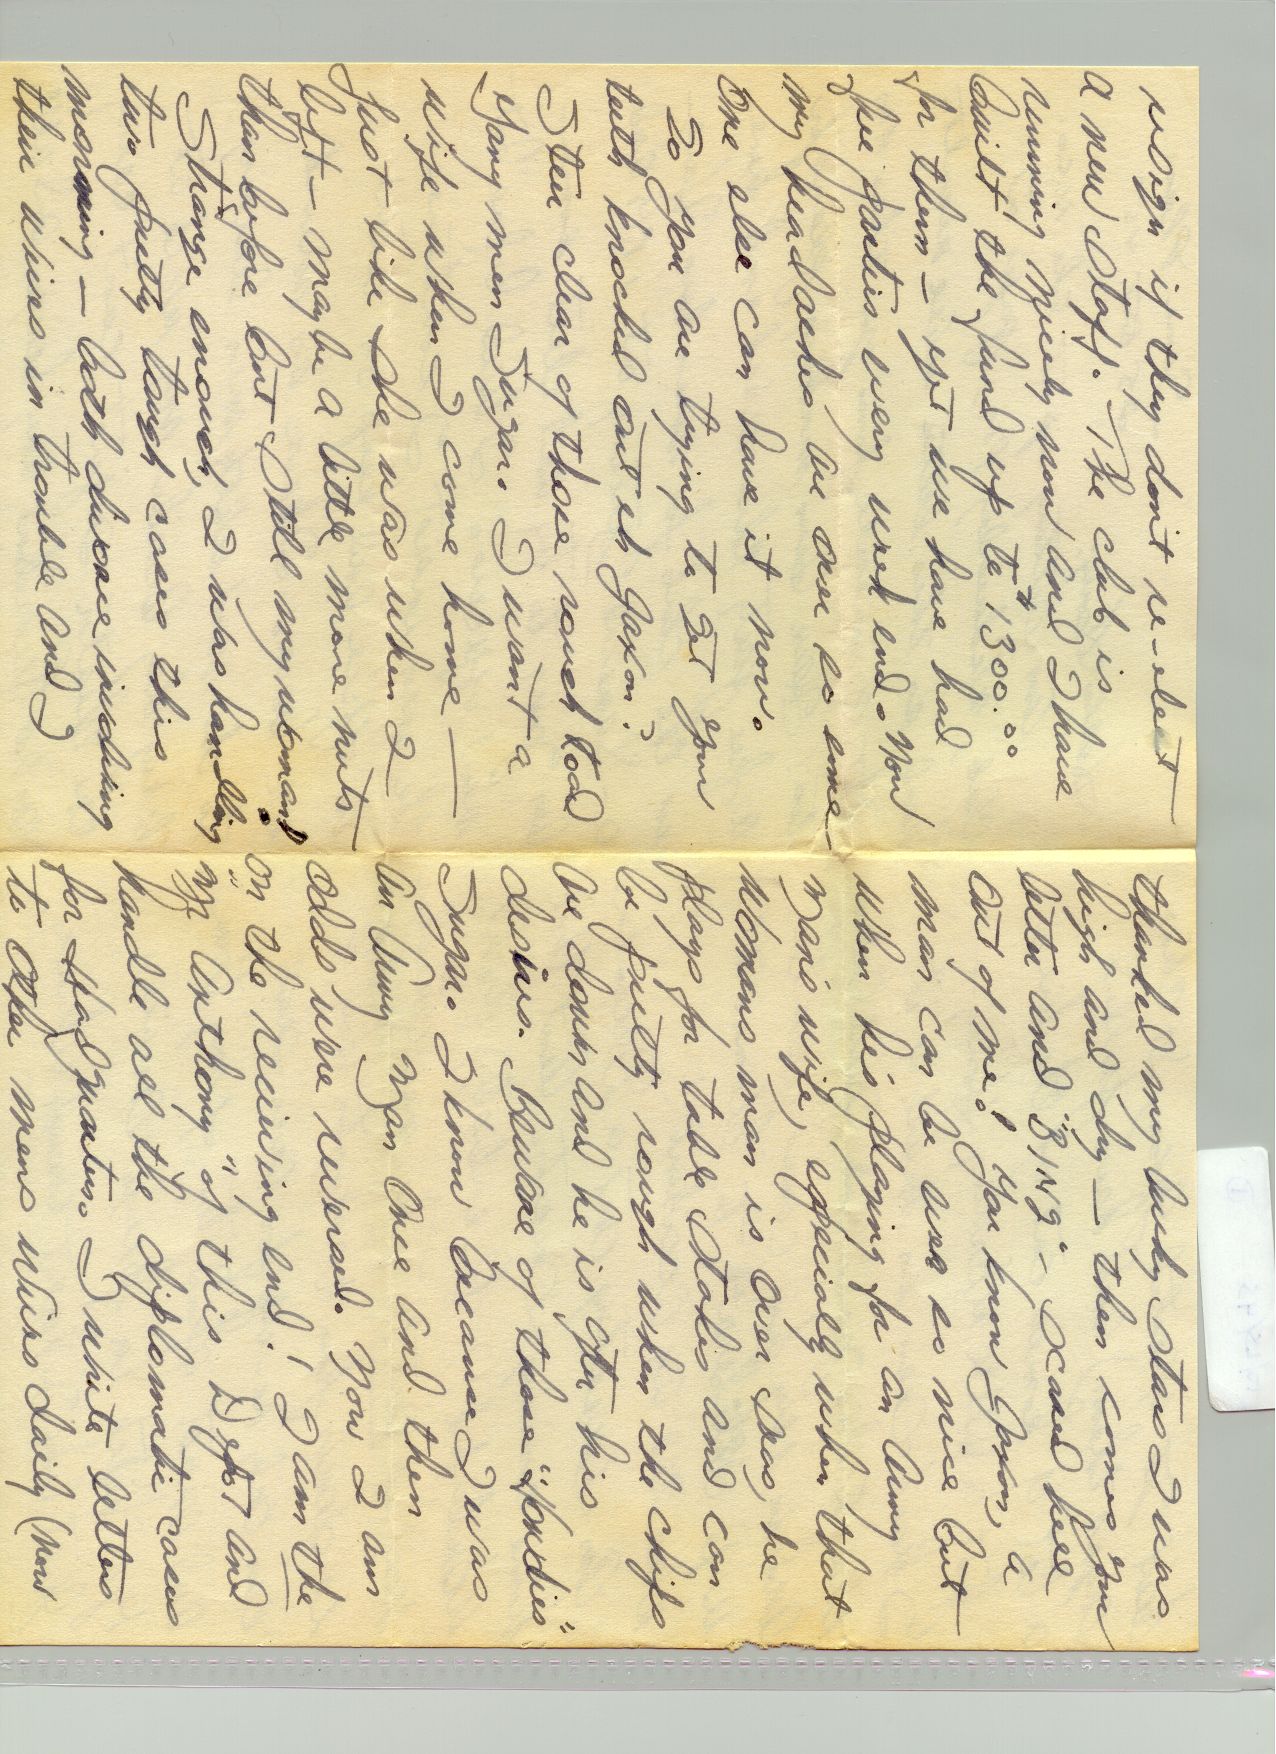 resign if they don't re-elect
a new staff. The club is
running nicely now and I have
built the fund up to $1300.00
for them — yet we have had
free parties every week end. Now
my headaches are over so some-
one else can have it now.
So you are trying to get your
teeth knocked out eh Jaxon?
Steer clear of those rough tood
Gary men Sugar. I want a
wife when I come home —
just like she was when I
left — maybe a little more nuts
than before but still my woman.
Strange enough, I was handling
two pretty tough cases this
morning — both divorce involving
their wives in trouble and I
thanked my lucky stars I was
high and dry — then comes your
letter and "BANG" — scared hell
out of me! You know Jaxon, a
man can be ever so nice but
when he's playing for an Army
Man's wife, especially when that
womans man is over seas, he
plays for table stakes and can
be pretty rough when the chips
are down and he is after his
desires. Beware of those "foxies"
Sugar. I know because I was
an Army Man once and then
odds were reversed. Now I am
on the receiving end! I am the
"Mr. Anthony" of this Dept and
handle all the diplomatic cases
for Headquarters. I write letters
to other mens wives daily (now